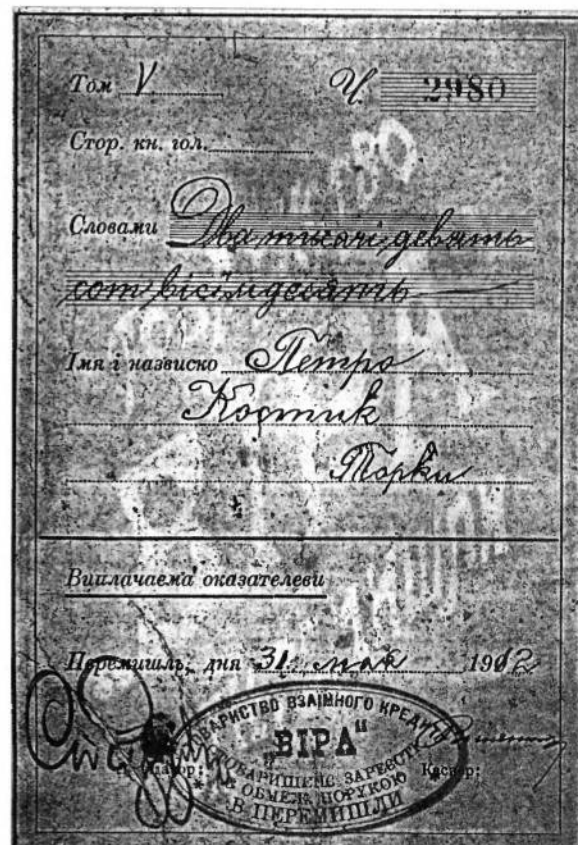 Том V Ч. 2980
Стор. кн. гол.
Словами Два тисячі девять
сот вісїмдесять
Імя і назвиско Петро
Костик
Торки
Виплачаєма оказателеви
Перемишль, дня 31. мая 1912
ТОВАРИСТВО ВЗАЇМНОГО КРЕДИТУ
"ВІРА"
СТОВАРИШЕНЄ ЗАРЕЄСТР.
З ОБМЕЖ. ПОРУКОЮ
В ПЕРЕМИШЛИ
Касиєр: